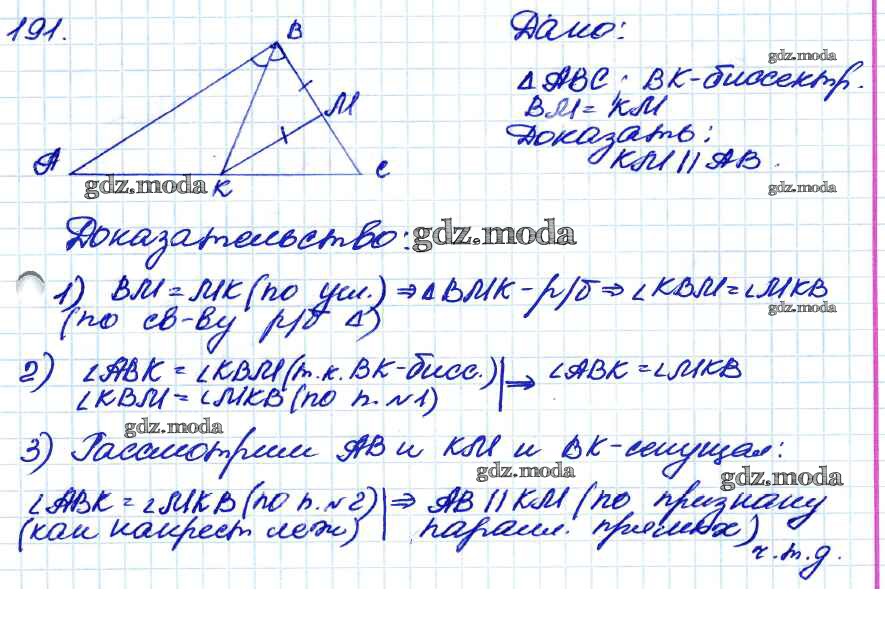 191.
B
M
A
K
C
Дано:
△ABC; BK-биссектр.
BM = KM
Доказать:
KM || AB.
Доказательство:
1) BM = MK (по усл.) ⇒ △BMK - р/б ⇒ ∠KBM = ∠MKB
(по св-ву р/б △)
2) ∠ABK = ∠KBM (т.к. BK-бисс.) | ⇒ ∠ABK = ∠MKB
∠KBM = ∠MKB (по п. №1)
3) Рассмотрим AB и KM и BK-секущая:
∠ABK = ∠MKB (по п. №2) | ⇒ AB || KM (по признаку
(как накрест леж) паралл. прямых)
ч.т.д.
gdz.moda
gdz.moda
gdz.moda
gdz.moda
gdz.moda
gdz.moda
gdz.moda
gdz.moda